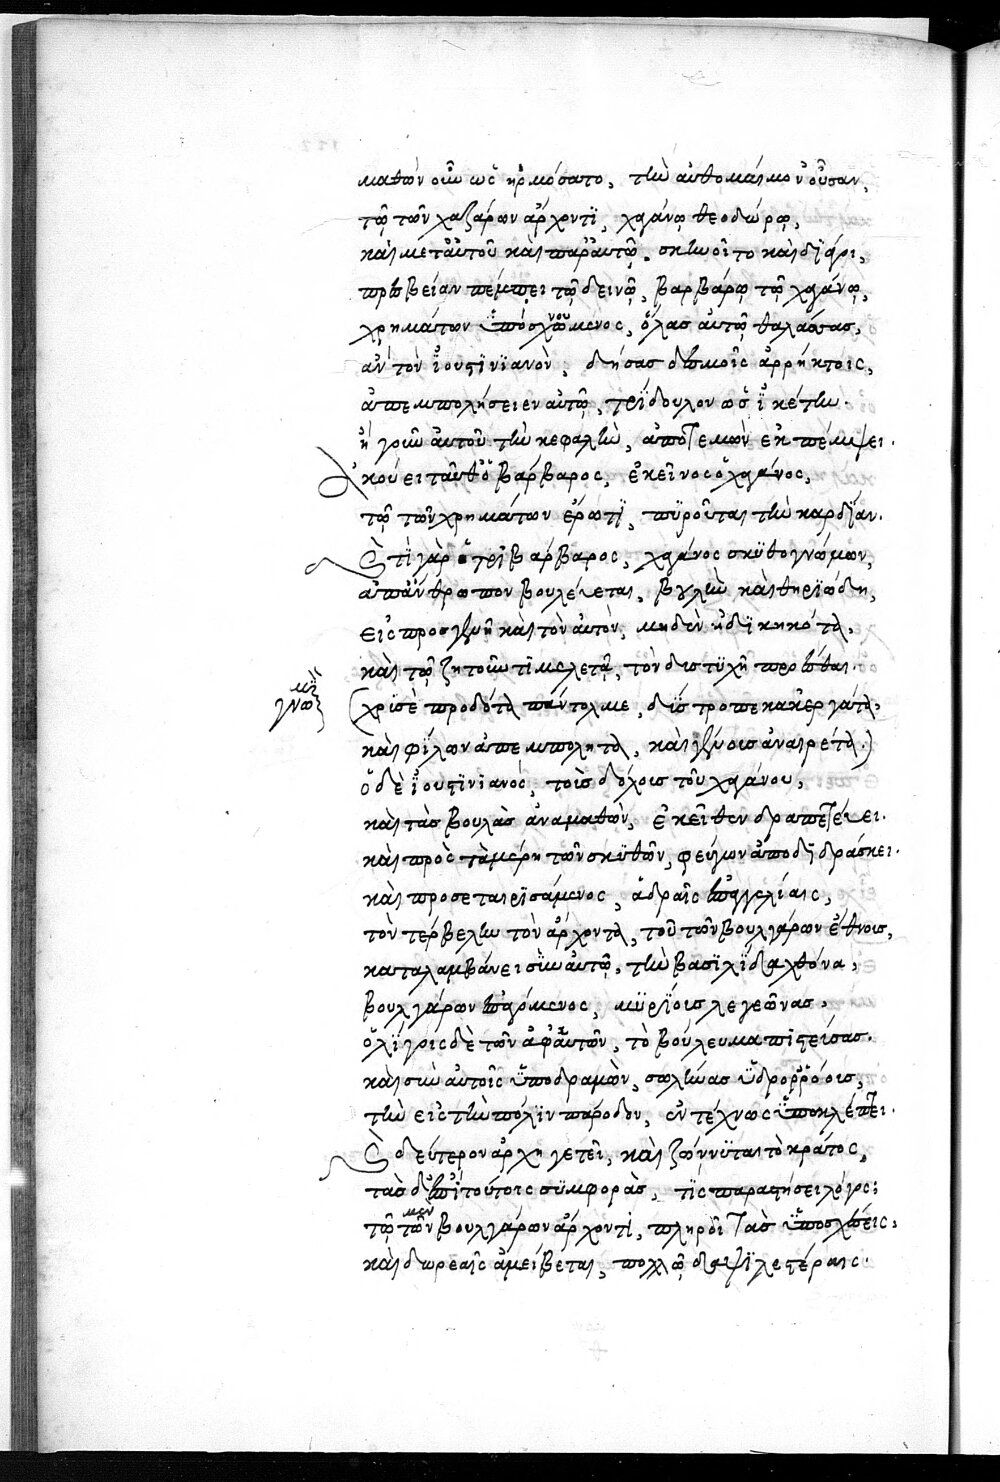 μαθὼν οὖν ὡς ἡρμόσατο, τὴν αὐθομαίμον οὖσαν,
τῷ τῶν χαζάρων ἄρχοντϊ, χαγάνῳ θεοδώρᾳ,
καὶ μετ' αὐτοῦ καὶ παρ' αὐτῷ. σκηνοῖτο καὶ δϊάγοι,
πρεσβείαν πέμπει τῷ δεινῷ, βαρβάρῳ τῷ χαγάνῳ,
χρημάτων ὑπόσχνούμενος, ὅλας αὐτῷ θαλάσσας,
ἂν τὸν ἰουστϊνϊανὸν, δήσας δεσμοῖς ἀρρήκτοις,
ἀπεμπολήσειεν αὐτῷ, τρϊδουλον ὡς ἱκέτην.
ἢ γοῦν αὐτοῦ τὴν κεφαλὴν, ἀποτεμὼν ἐκπέμψει.
ἀκούει ταῦθ' ὁ βάρβαρος, ἐκεῖνος ὁ χαγάνος,
τῷ τῶν χρημάτων ἔρωτϊ, πϋροῦται τὴν καρδϊαν.
Ὁ τϊ γὰρ ὁ τρϊβάρβαρος, χαγάνος σκϋθογνώμων,
ἀπάνθρωπον βουλεύεται, βουλὴν καὶ θηρϊώδη,
εἰς προσφυγῆ καὶ τὸν αὐτὸν, μηδὲν ἠδϊκηκότα,
καὶ τῷ ζητοῦντι μελετᾷ, τὸν δυστϋχῆ προέσθαι.
γνώμη
(χρϋσὲ προδότα πάντολμε, δϋστροπε κακεργάτα,
καὶ φϊλων ἀπεμπολητὰ, καὶ ξένους ἀναιρέτα.)
ὁ δὲ ἰουστϊνιανὸς, τοὺς δόλους τοῦ χαγάνου,
καὶ τὰς βουλὰς ἀναμαθὼν, ἐκεῖθεν δραπετεύει.
καὶ πρὸς τὰ μέρη τῶν σκϋθῶν, φεύγων ἀποδϊδράσκει.
καὶ προσεταιρϊσάμενος, ἁδραῖς ἐπαγγελίαις,
τὸν τέρβελην τὸν ἄρχοντα, τοῦ τῶν βουλγάρων ἔθνους,
καταλαμβάνει σὺν αὐτῷ, τὴν βασϊλϊδα χθόνα,
βουλγάρων ἐπαγόμενος, μϋρϊους λεγεῶνας.
ὀλϊγους δὲ τῶν ἀφ' αὑτῶν, τὸ βούλευμα πϊστεύσας.
καὶ σὺν αὐτοῖς ὑποδραμὼν, σωλῆνας ὑδρορρόους,
τὴν εἰς τὴν πόλϊν πάροδον, ἐντέχνως ὑποκλέπτει.
Ὁ δεύτερον ἀρχηγετεῖ, καὶ ζώννϋται τὸ κράτος,
τὰς δ' ἐπὶ τούτοις συμφορὰς, τϊς παραστήσει λόγος;
τῷ μὲν τῶν βουλγάρων ἄρχοντϊ, πληροῖ τὰς ὑποσχέσεις,
καὶ δωρεαῖς ἀμείβεται, πολλῷ δαψϊλεστέραις.